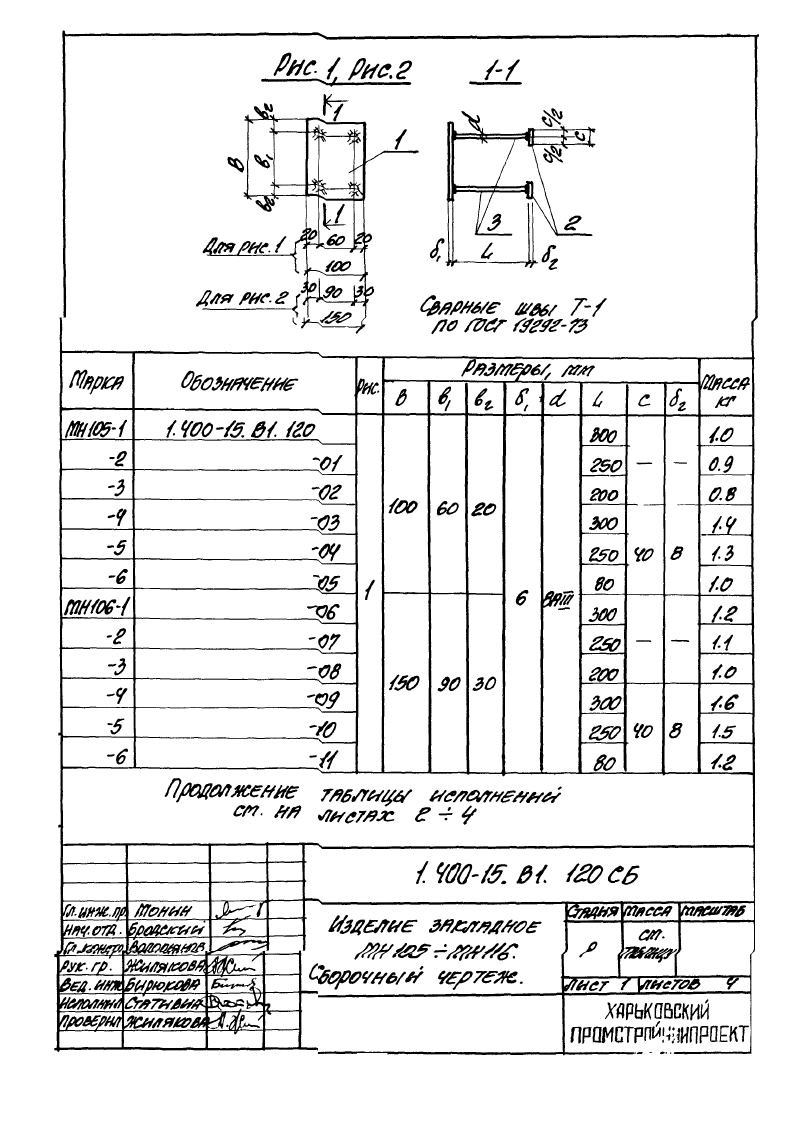 Рис. 1, Рис. 2
1-1
1
1
1
B
в2
в1
в2
Для рис. 1
20 60 20
100
Для рис. 2
30 90 30
150
d
с/2
с/2
с
3
2
δ1
L
δ2
Сварные швы Т-1
по ГОСТ 19292-73
Марка Обозначение Рис. Размеры, мм Масса кг
В в1 в2 δ1 d L с δ2
МН105-1 1.400-15.В1.120 1 100 60 20 6 8АIII 300 — — 1.0
-2 -01 250 0.9
-3 -02 200 0.8
-4 -03 300 40 8 1.4
-5 -04 250 1.3
-6 -05 80 1.0
МН106-1 -06 150 90 30 300 — — 1.2
-2 -07 250 1.1
-3 -08 200 1.0
-4 -09 300 40 8 1.6
-5 -10 250 1.5
-6 -11 80 1.2
Продолжение таблицы исполнений
см. на листах 2 ÷ 4
1.400-15.В1.120 СБ
Гл. инж. пр. Монин
Нач. отд. Бродский
Гл. констр.
Рук. гр. Жилякова
Вед. инж. Бирюкова
Исполнил Статывна
Проверил Жилякова
Изделие закладное
МН105 ÷ МН116.
Сборочный чертеж.
Стадия Масса Масштаб
Р см. таблицу
Лист 1 Листов 4
ХАРЬКОВСКИЙ
ПРОМСТРОЙНИИПРОЕКТ